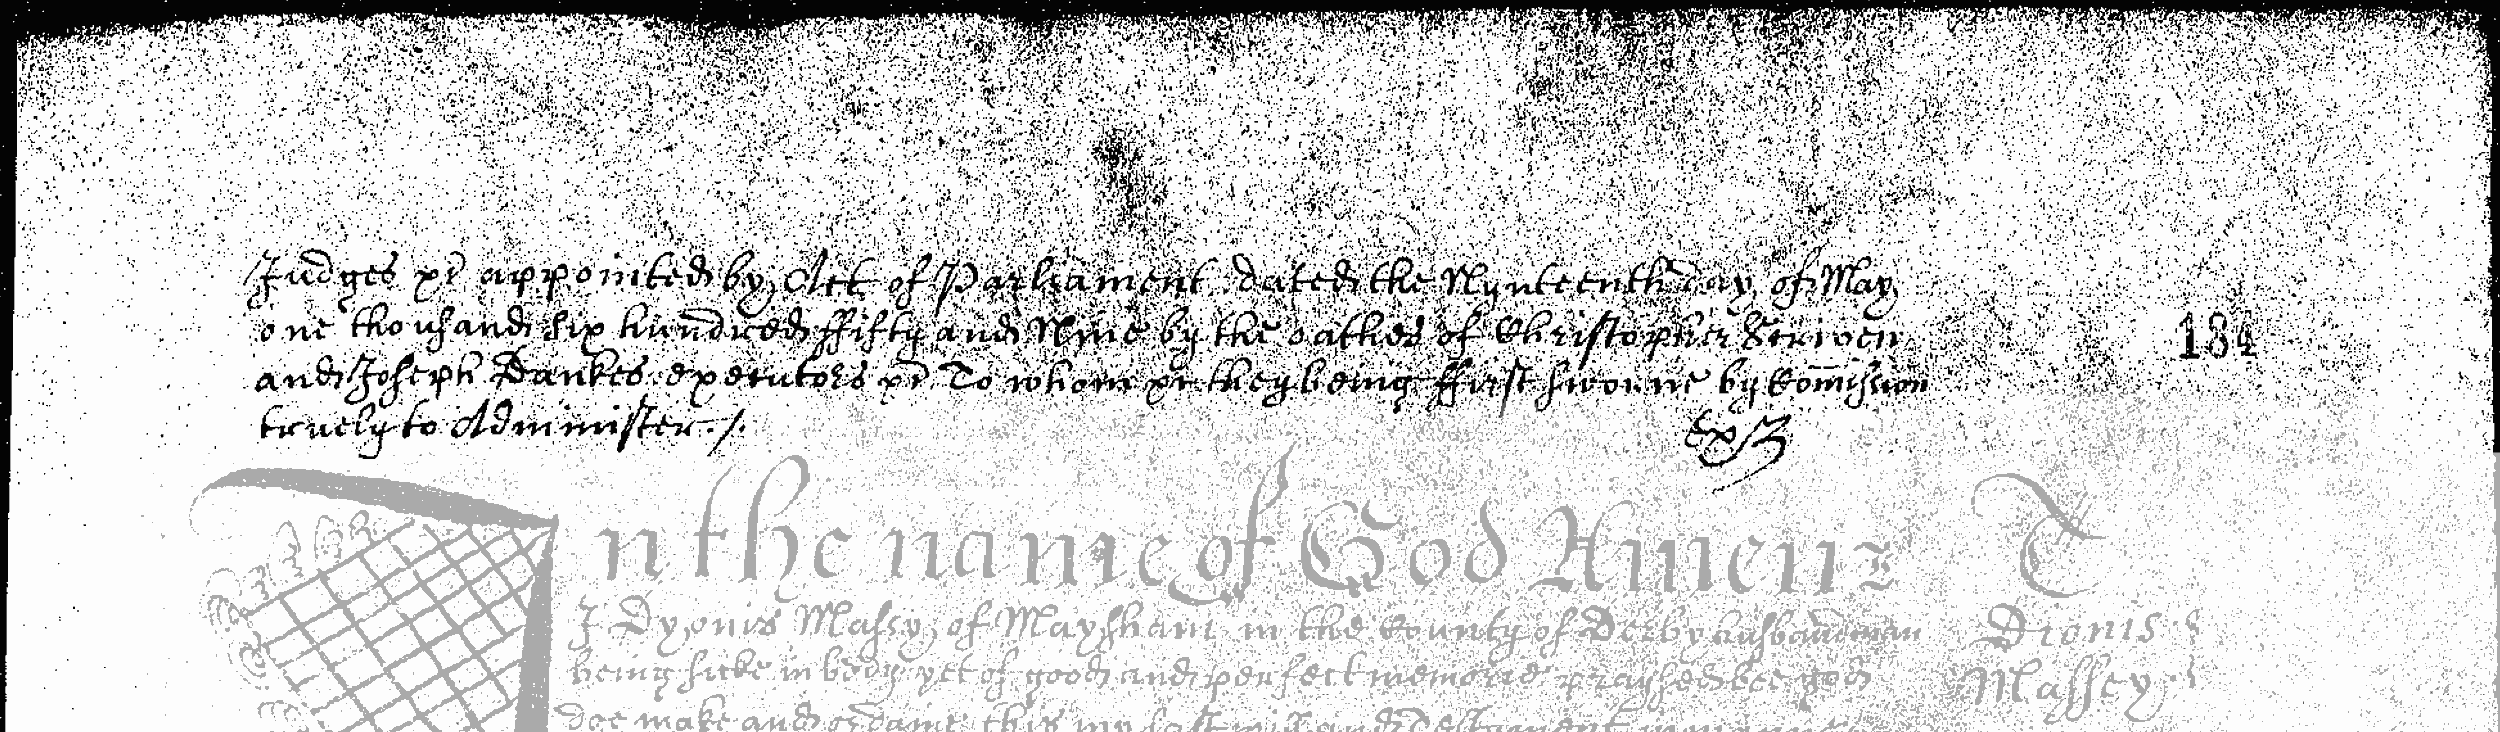 Judges &c appointed by Act of Parliament dated the Nynteenth day of May
one thousand six hundred ffifty and Nine by the oathes of Christopher Scriven
and Joseph Bankes executors &c To whom &c they being ffirst sworne by Comission
truely to Administer ./.
184
In the name of God Amen
I Dyonis Massy of Maysham in the County of Derby husbandman
being sicke in body yet of good and perfect memorie praysed bee god
doe make and ordaine this my last will and Testament
T
Dionis
Massey